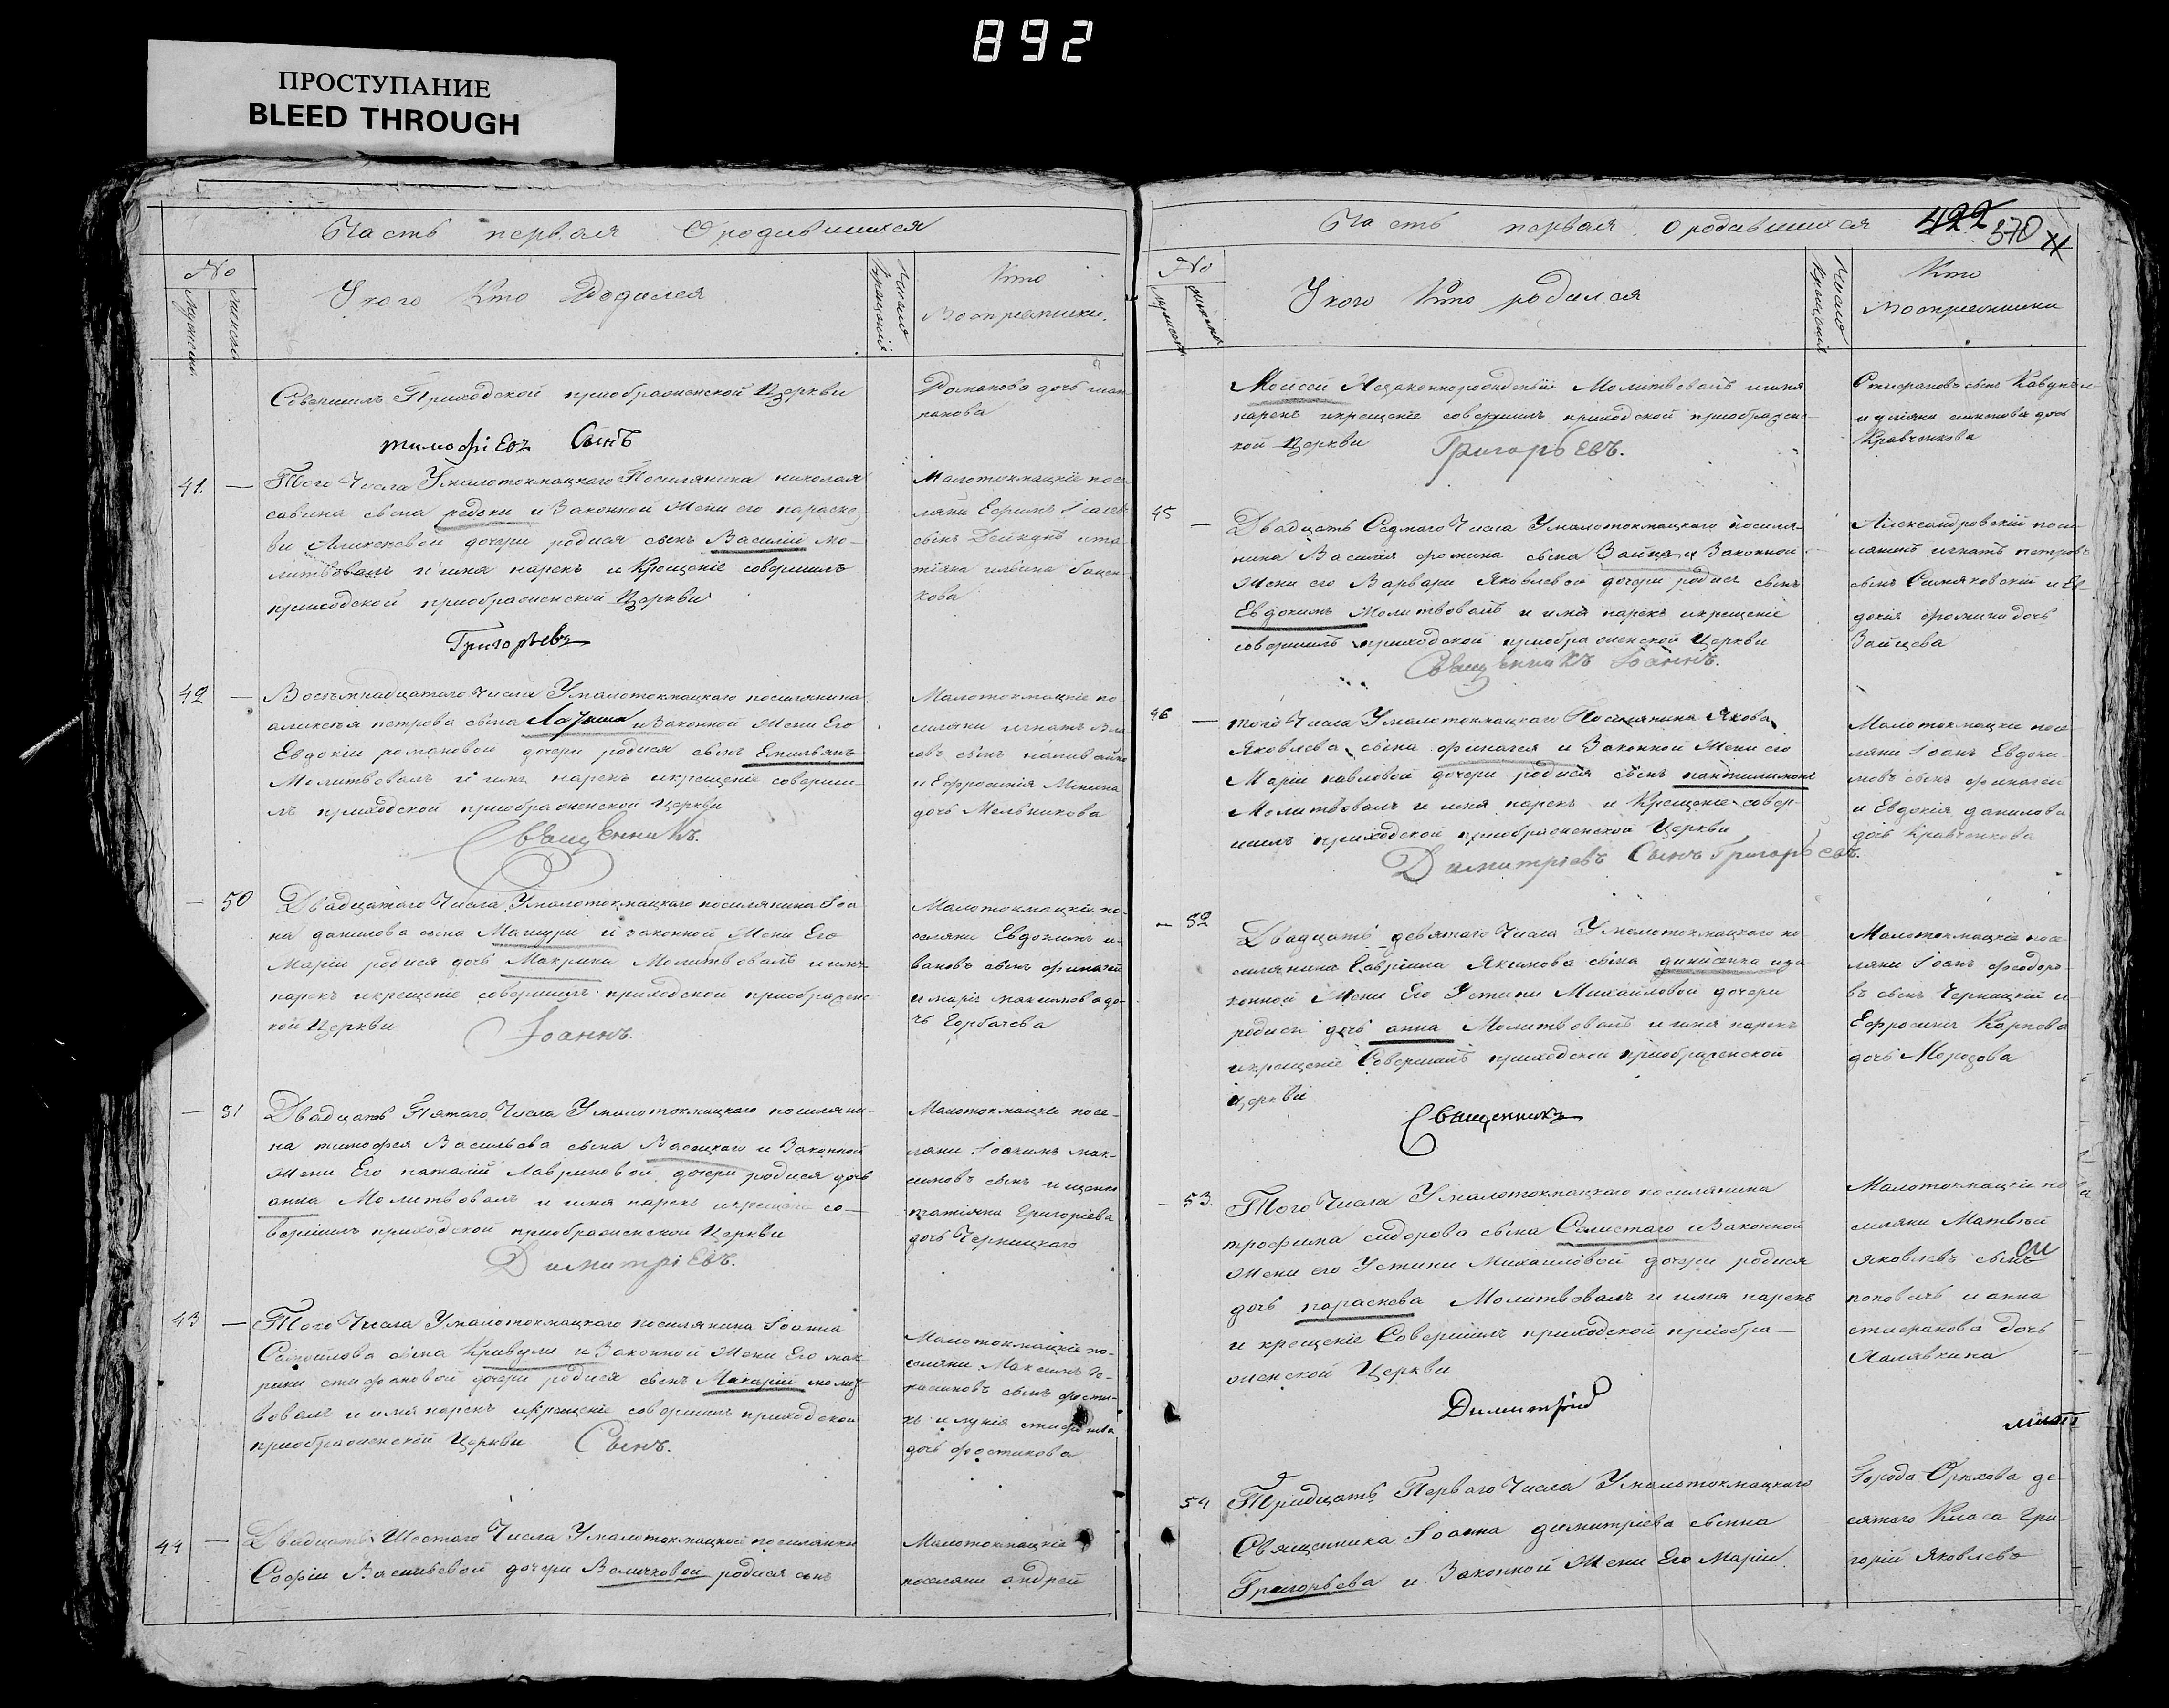 892
ПРОСТУПАНИЕ
BLEED THROUGH
Часть первая О родившихся
No
Укого Кто Родился
Число Крещенія
Кто
Восприемники.
Совершилъ Приходской приображенской Церкви
тимофіевъ Сынъ
Романова дочь
41. — Того Числа Умалотокмацкаго Поселянина николая
савина сына редьки и Законной Жени его параске
ви Аликсѣевой дочери родися сынъ Василій мо-
литвовалъ и имя нарекъ и Крещеніе совершилъ
приходской приображенской Церкви
Григорьевъ
Малотокмацкіе посе
ляни Ефримъ Ісаевъ
сынъ
кова
42 — Восемнадцатаго Числа Умалотокмацкаго поселянина
аликсѣя петрова сына и Законной Жени Его
Евдокіи романовой дочери родися сынъ Емильянъ
Молитвовалъ и имя нарекъ икрещеніе соверши-
лъ приходской приображенской Церкви
Священникъ.
Малотокмацкіе по-
селяни игнатъ Вла
совъ сынъ наливайко
и Ефросинія Минина
дочь Мельникова
— 50 Двадцатаго Числа Умалотокмацкаго поселянина Іоа
на данилова сына Мачури и законной Жени Его
Маріи родися дочь Макрина Молитвовалъ и имя
нарекъ икрещеніе совершилъ приходской приображенс
кой Церкви
Іоаннъ.
Малотокмацкіе по-
селяни Евдокимъ и-
вановъ сынъ финагей
и марія максимова до-
чь Горбачева
— 51 Двадцать Пятаго Числа Умалотокмацкаго поселяни-
на тимофея Васильева сына Васецкаго и Законной
Жени Его наталій Лавриновой дочери родися дочь
анна Молитвовалъ и имя нарекъ икрещеніе со-
вершилъ приходской приображенской Церкви
Димитріевъ.
Малотокмацкіе посе-
ляни Іоакимъ мак-
симовъ сынъ ищенко
татіяна Григоріева
дочь Черницкаго
43 — Того Числа Умалотокмацкаго поселянина Іоанна
Самойлова сына Кривули и Законной Жени Его мак
рини стифановой дочери родися сынъ Макарій молит
вовалъ и имя нарекъ икрещеніе совершилъ приходской
приображенской Церкви Сынъ.
Малотокмацкіе по-
селяни Максимъ Ге-
расимовъ сынъ фости-
къ и лукія стифанова
дочь фостикова
44 — Двадцать Шестаго Числа Умалотокмацкой поселянки
Софіи Васильевой дочери Величковой родися сынъ
Малотокмацкіе
поселяни андрей
Часть первая О родившихся
422
370
No
Укого Кто родился
Число Крещенія
Кто
Восприемники
Мойсей Незаконнорожденній Молитвовалъ и имя
нарекъ икрещеніе совершилъ приходской приображенс-
кой Церкви Григорьевъ.
Стифановъ сынъ
дочь
Кравченкова
45 — Двадцать Седмаго Числа Умалотокмацкаго поселя-
нина Василія фомина сына Зайца и Законной
Жени его Варвари Яковлевой дочери родися сынъ
Евдокимъ Молитвовалъ и имя нарекъ икрещеніе
совершилъ приходской приображенской Церкви
Священникъ Іоаннъ.
Александровскій посе-
лянинъ игнатъ петровъ
сынъ Синяковскій и Ев-
докія фомина дочь
Зайцева
46 — того Числа Умалотокмацкаго Поселянина Якова
Яковлева сына финагея и Законной Жени его
Маріи павловой дочери родися сынъ пантилимонъ
Молитвовалъ и имя нарекъ и Крещеніе совер-
шилъ приходской приображенской Церкви
Димитріевъ Сынъ Григорьевъ.
Малотокмацкіе посе
ляни Іоанъ Евдоки-
мовъ сынъ финагей
и Евдокія данилова
дочь Кравченкова
— 52 Двадцать девятаго Числа Умалотокмацкаго по
селянина Гавріила Якимова сына диниченка иза
конной Жени Его Устини Михайловой дочери
родися дочь анна Молитвовалъ и имя нарекъ
икрещеніе Совершилъ приходской приображенской
Церкви
Священникъ
Малотокмацкіе посе-
ляни Іоанъ феодоро-
въ сынъ Черницкій и-
Ефросинія Карпова
дочь Морозова
— 53. Того Числа Умалотокмацкаго поселянина
трофима сидорова сына Салистаго и Законной
Жени его Устини Михайловой дочери родися
дочь параскева Молитвовалъ и имя нарекъ
и крещеніе Совершилъ приходской приобра-
женской Церкви
Димитрій
Малотокмацкіе по
селяни Матвѣй
яковлевъ сынъ
поповичъ и анна
стифанова Дочь
Халявкина
54 Тридцать Первого Числа Умалотокмацкаго
Священника Іоанна димитріева сынна
Григорьева и Законной Жени Его Маріи
Города Орѣхова де
сятаго Класа Гри-
горій Яковлевъ